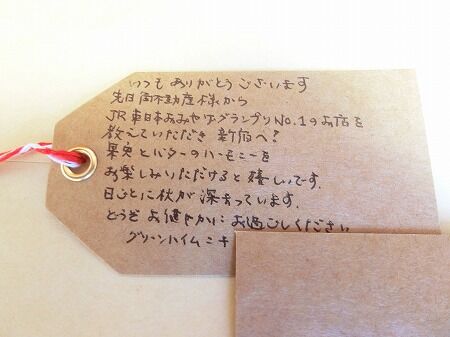 いつも ありがとうございます
先日 不動産様から
JR東日本おみやげグランプリNo.1のお店を
教えていただき 新宿へ!
果実とバターのハーモニーを
お楽しみいただけると嬉しいです.
日ごとに秋が 深まっています.
どうぞ お健やかに お過ごしください
グリーンハイム ニキ